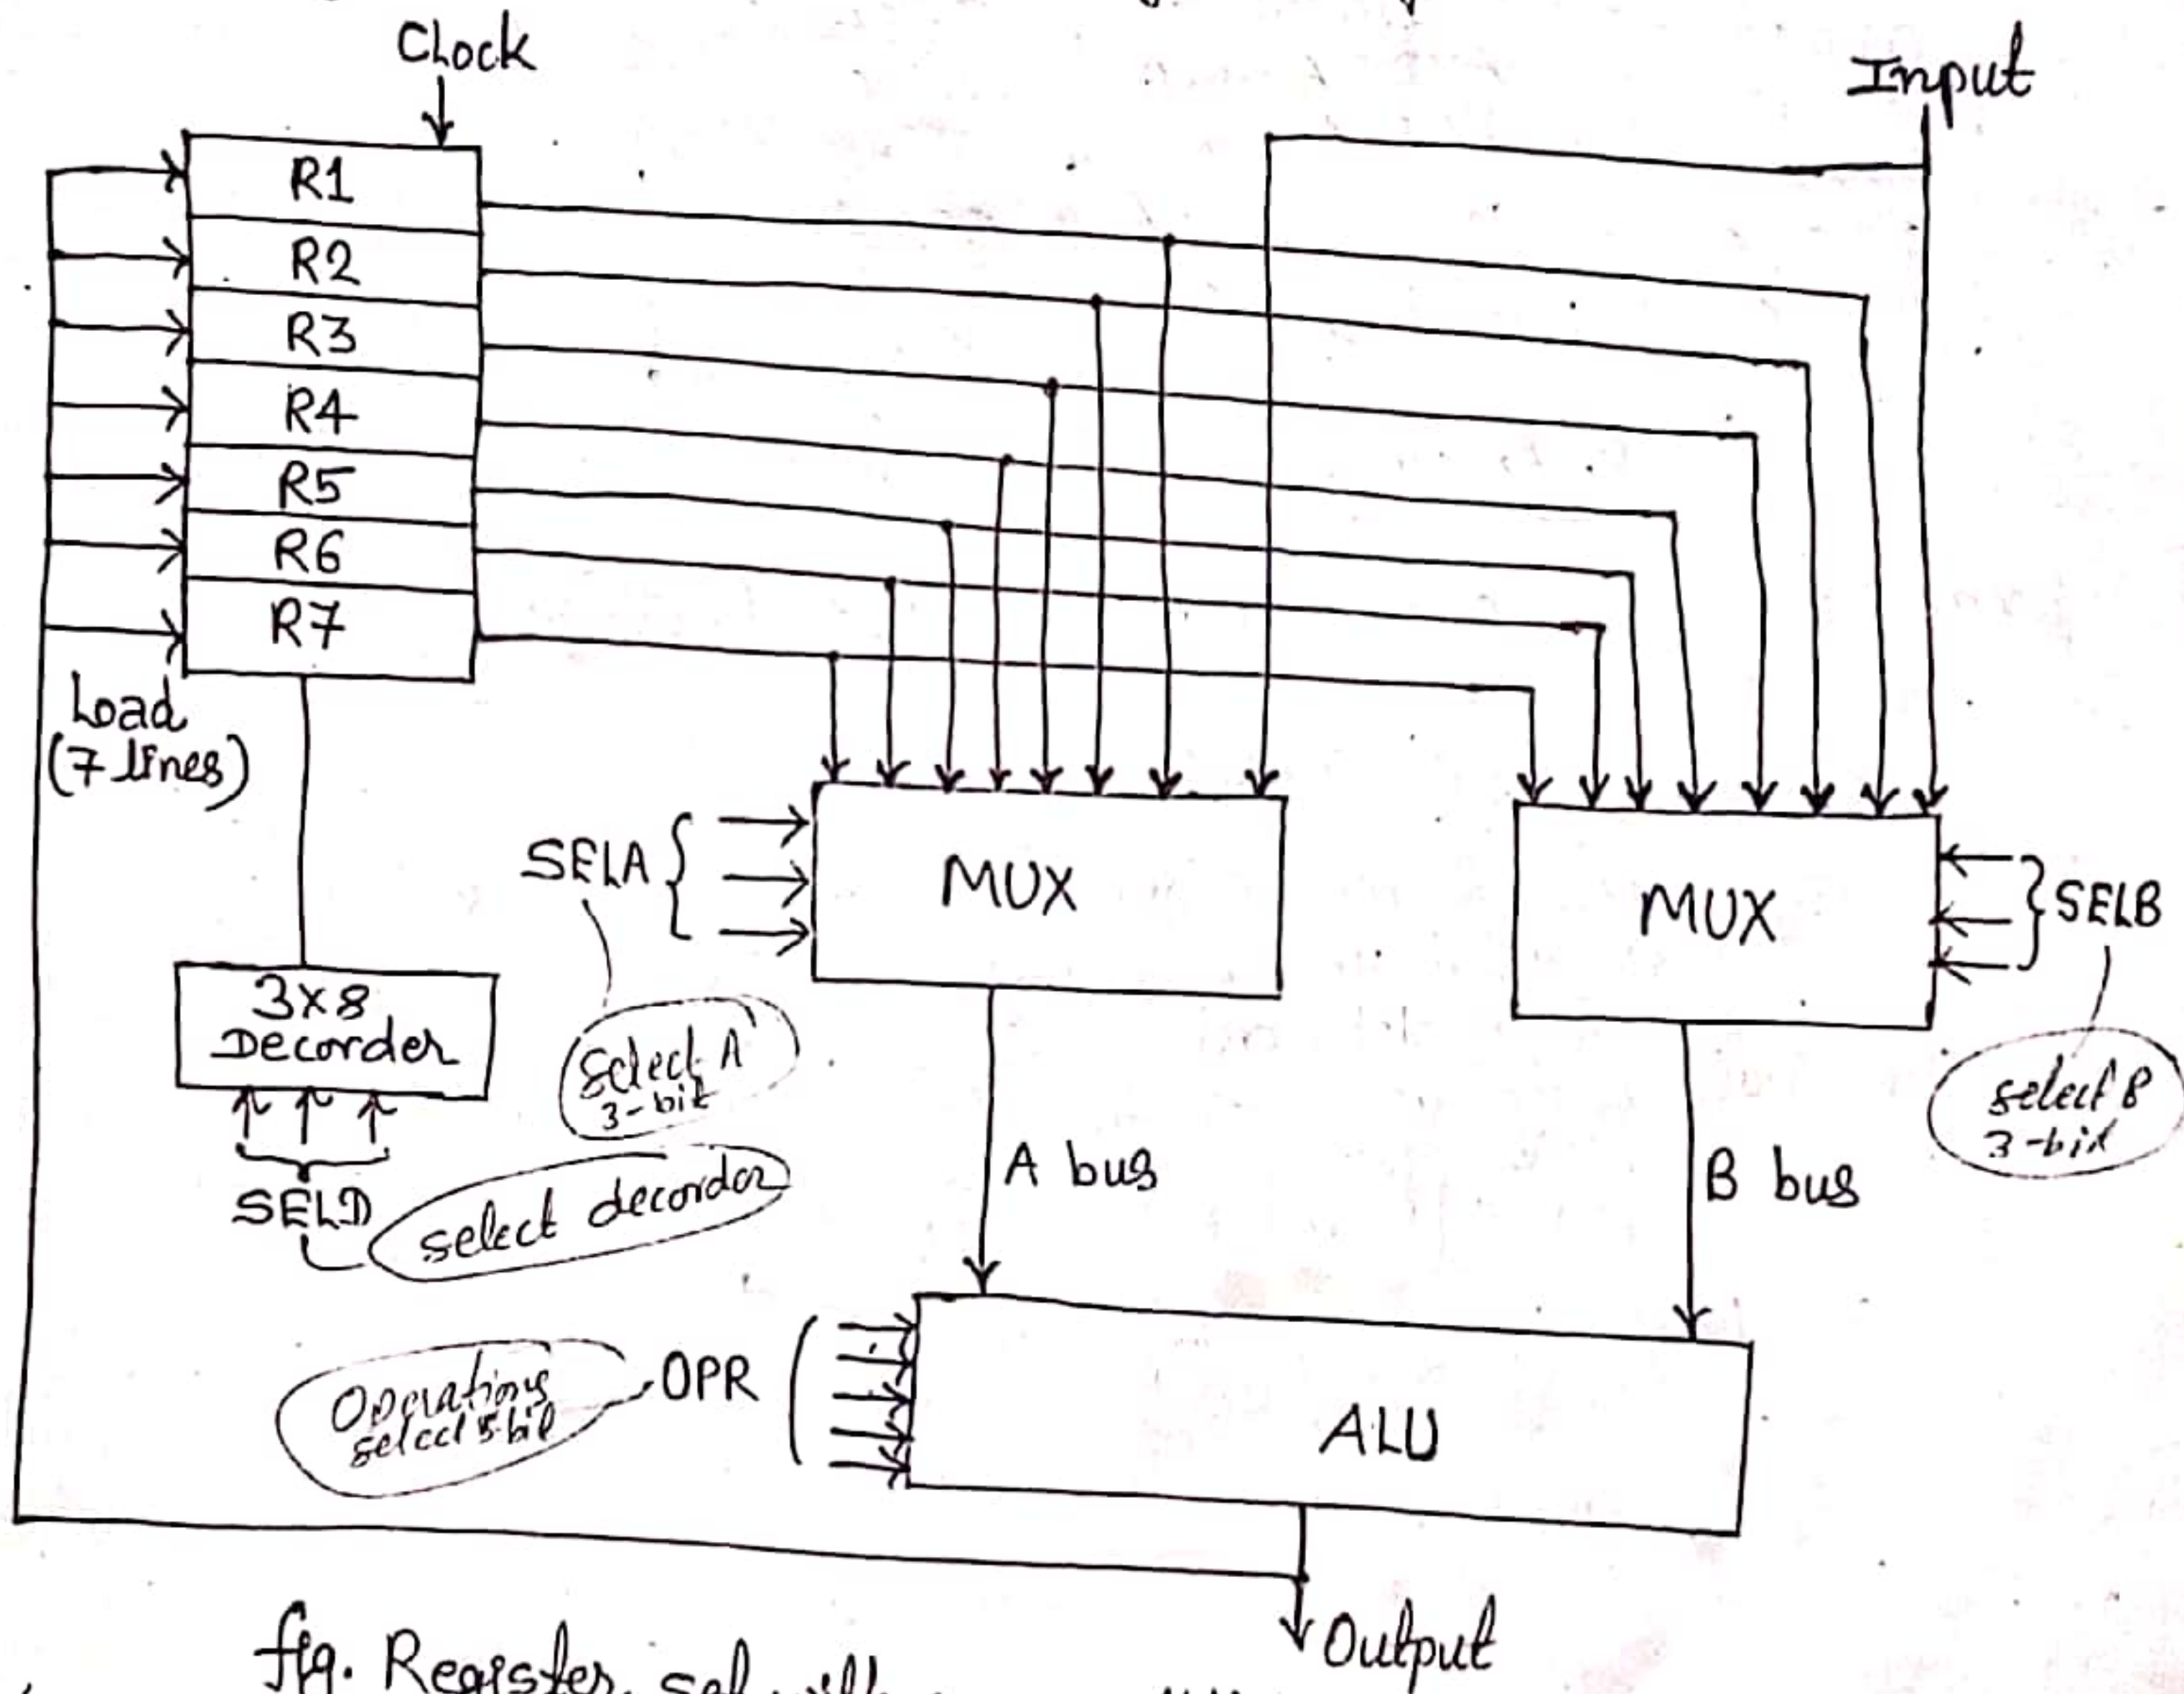 Clock
Input
R1
R2
R3
R4
R5
R6
R7
Load
(7 lines)
SELA
MUX
MUX
SELB
3x8
Decorder
select A
3-bit
select B
3-bit
A bus
B bus
SELD
select decorder
Operations
select 5-bit
OPR
ALU
Output
fig. Register set with